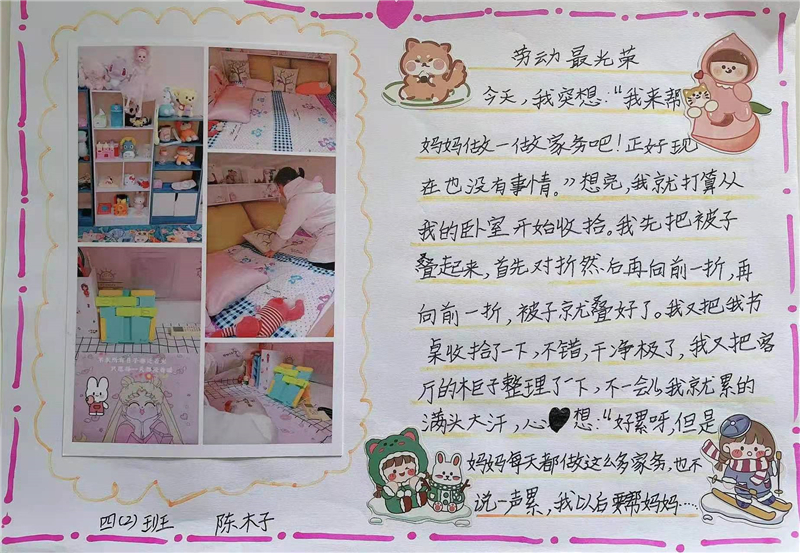 劳动最光荣
今天，我突想：“我来帮
妈妈做一做家务吧！正好现
在也没有事情。”想完，我就打算从
我的卧室开始收拾。我先把被子
叠起来，首先对折然后再向前一折，再
向前一折，被子就叠好了。我又把我书
桌收拾了一下，不错，干净极了，我又把客
厅的柜子整理了一下，不一会儿我就累的
满头大汗，心想：“好累呀，但是
妈妈每天都做这么多家务，也不
说一声累，我以后要帮妈妈……
四（2）班 陈木子